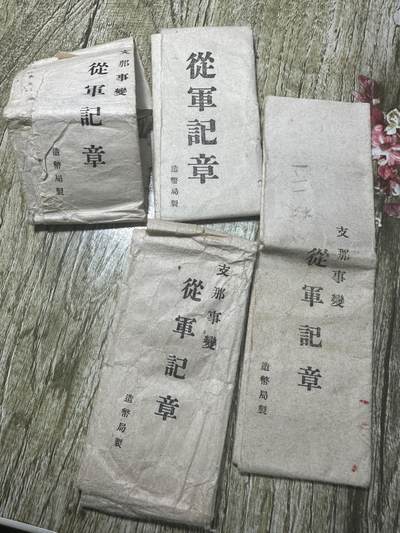 支那事變
從軍記章
造幣局製
從軍記章
造幣局製
支那事變
從軍記章
造幣局製
支那事變
從軍記章
造幣局製